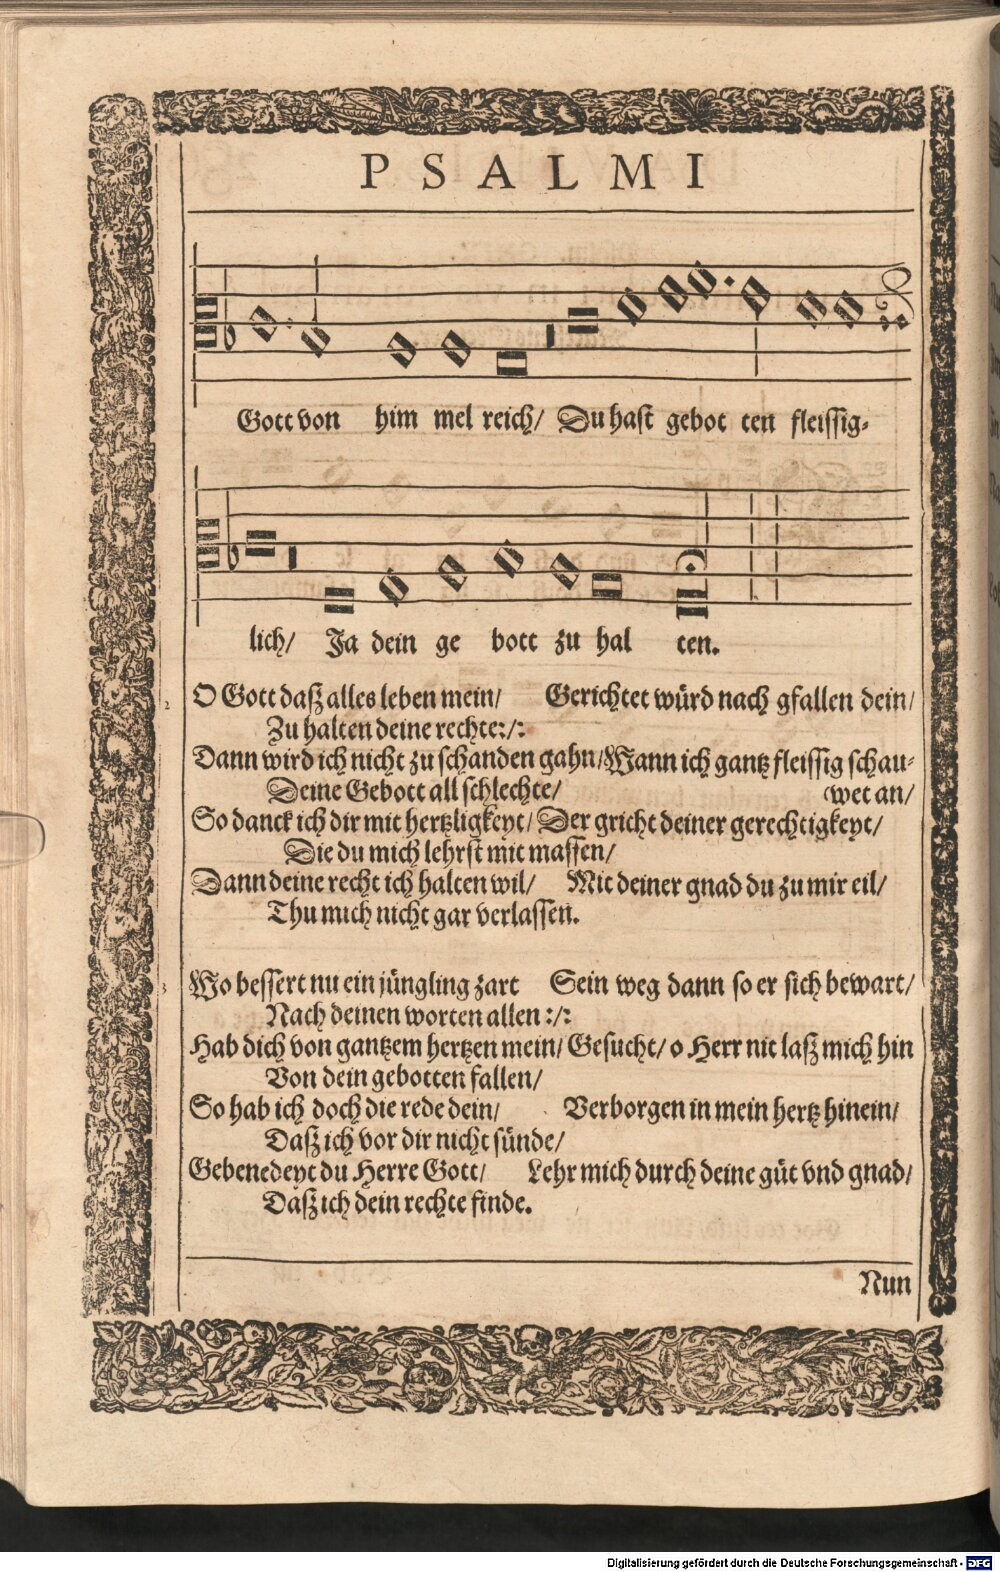 PSALMI
Gott von him mel reich/ Du hast gebot ten fleissig-
lich/ Ja dein ge bott zu hal ten.
2 O Gott daß alles leben mein/ Gerichtet würd nach gfallen dein/
Zu halten deine rechte:/:
Dann wird ich nicht zu schanden gahn/Wann ich gantz fleissig schau-
Deine Gebott all schlechte/ (wet an/
So danck ich dir mit hertzligkeyt/ Der gricht deiner gerechtigkeyt/
Die du mich lehrst mit massen/
Dann deine recht ich halten wil/ Mit deiner gnad du zu mir eil/
Thu mich nicht gar verlassen.
3 Wo bessert nu ein jüngling zart Sein weg dann so er sich bewart/
Nach deinen worten allen:/:
Hab dich von gantzem hertzen mein/ Gesucht/ o Herr nit laß mich hin
Von dein gebotten fallen/
So hab ich doch die rede dein/ Verborgen in mein hertz hinein/
Daß ich vor dir nicht sünde/
Gebenedeyt du Herre Gott/ Lehr mich durch deine güt vnd gnad/
Daß ich dein rechte finde.
Nun
Digitalisierung gefördert durch die Deutsche Forschungsgemeinschaft - DFG